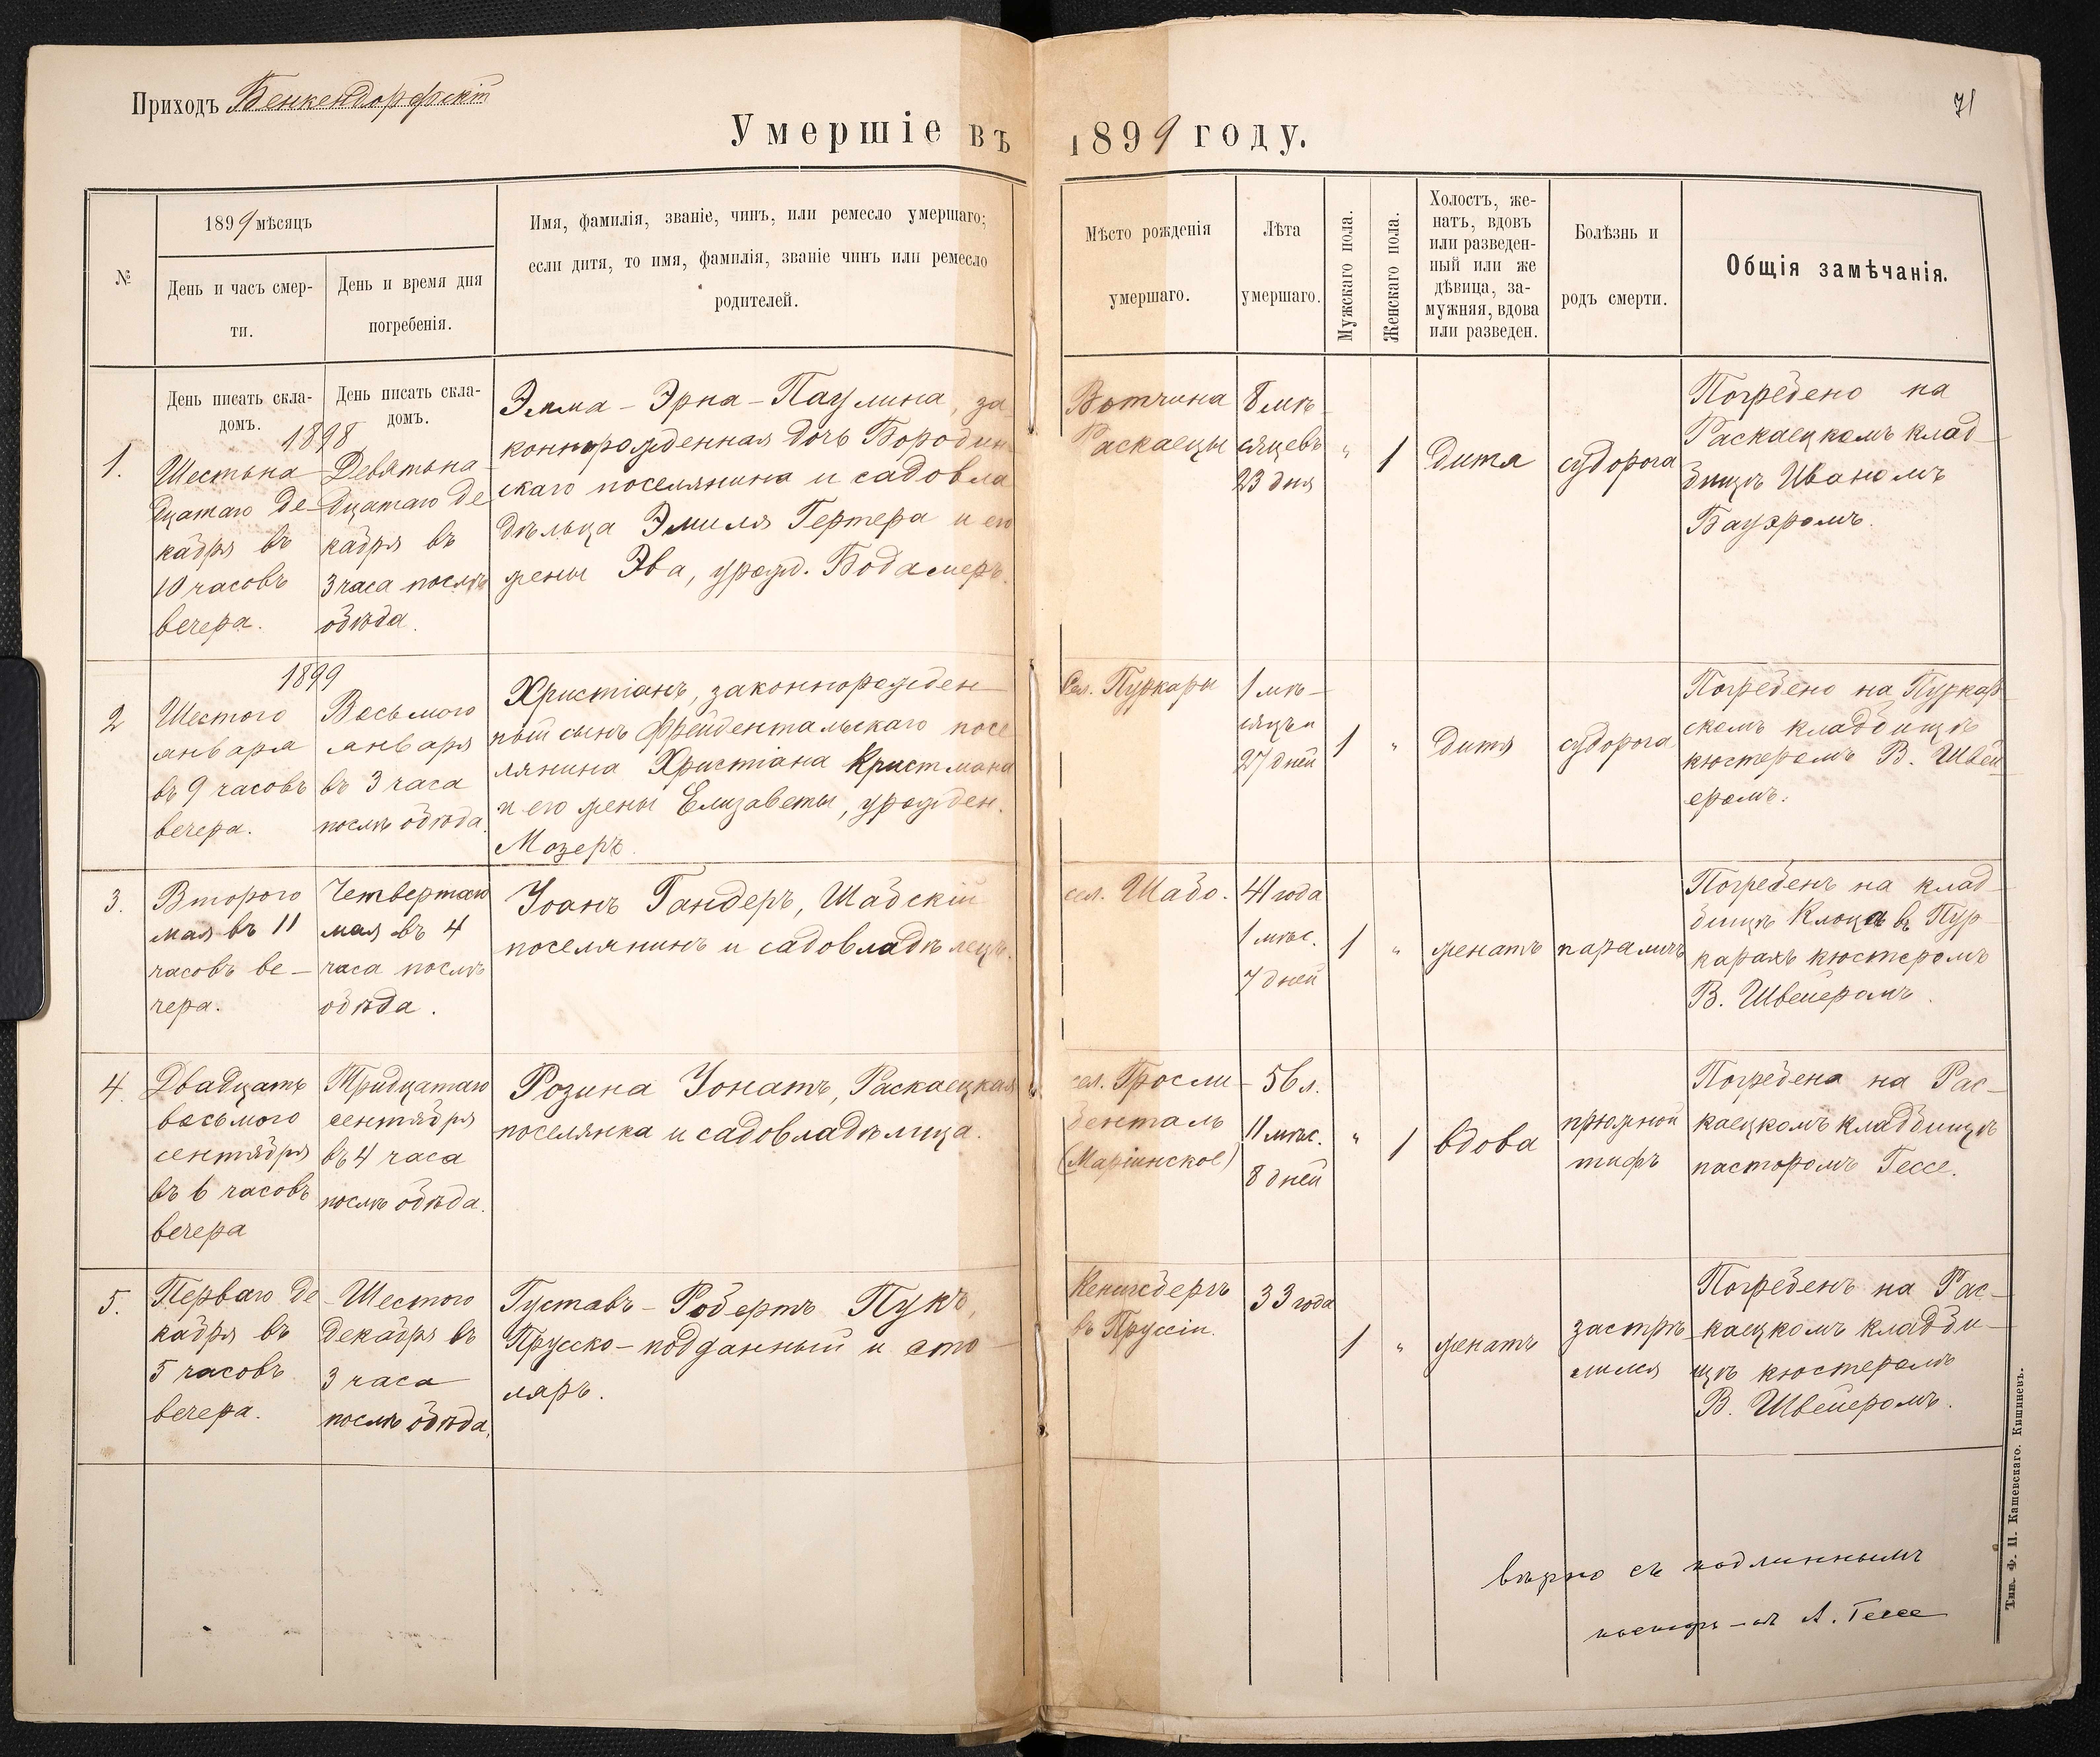 Приходъ Бенкендорфскій
71
Умершіе въ 1899 году.
№
1899 мѣсяцъ
День и часъ смер-
ти.
День и время дня
погребенія.
Имя, фамилія, званіе, чинъ, или ремесло умершаго;
если дитя, то имя, фамилія, званіе чинъ или ремесло
родителей.
Мѣсто рожденія
умершаго.
Лѣта
умершаго.
Мужскаго пола.
Женскаго пола.
Холостъ, же-
натъ, вдовъ
или разведен-
ный или же
дѣвица, за-
мужняя, вдова
или разведен.
Болѣзнь и
родъ смерти.
Общія замѣчанія.
День писать скла-
домъ.
День писать скла-
домъ.
1898
1.
Шестьна-
дцатаго де-
кабря въ
10 часовъ
вечера.
Девятьна-
дцатаго де-
кабря въ
3 часа послѣ
обѣда.
Эмма - Эрна - Паулина, за-
коннорожденная дочь Бородин-
скаго поселянина и садовла
дѣльца Эмиля Гертера и его
жены Эва, урожд. Бодамеръ.
Вотчина
Раскаецы
8 мѣ-
сяцевъ
23 дня
"
1
дитя
судорога
Погребено на
Раскаецкомъ клад-
бищѣ Иваномъ
Бауэромъ.
1899
2
Шестого
января
въ 9 часовъ
вечера.
Восьмого
января
въ 3 часа
послѣ обѣда.
Христіанъ, законнорожден-
ный сынъ Фрейдентальскаго посе
лянина Христіана Кристмана
и его жены Елизаветы, урожден.
Мозеръ.
Сел. Пуркары
1 мѣ-
сяцъ и
27 дней
1
"
дитя
судорога
Погребено на Пуркар
скомъ кладбищѣ
кюстеромъ В. Швей
еромъ.
3.
Второго
мая въ 11
часовъ ве-
чера.
Четвертаго
мая въ 4
часа послѣ
обѣда.
Іоанъ Гандеръ, Шабскій
поселянинъ и садовладѣлецъ.
сел. Шабо.
41 года
1 мѣс.
7 дней
1
"
женатъ
параличъ
Погребенъ на клад-
бищѣ Клоца въ Пур-
карахъ кюстеромъ
В. Швейеромъ.
4.
Двадцать
восьмого
сентября
въ 6 часовъ
вечера
Тридцатаго
сентября
въ 4 часа
послѣ обѣда.
Розина Іонатъ, Раскаецкая
поселянка и садовладѣлица.
сел. Гросли-
бенталь
(Маріинское)
56 л.
11 мѣс.
8 дней
"
1
вдова
брюжной
тифъ
Погребена на Рас-
каецкомъ кладбищѣ
пасторомъ Гессе.
5.
Перваго де-
кабря въ
5 часовъ
вечера.
Шестого
декабря въ
3 часа
послѣ обѣда.
Густавъ - Робертъ Пукъ,
Прусско - подданный и сто-
ляръ.
Кенигсбергъ
въ Пруссіи.
33 года
1
"
женатъ
застрѣ-
лился
Погребенъ на Рас-
каецкомъ кладби-
щѣ кюстеромъ
В. Швейеромъ.
вѣрно съ подлиннымъ
А. Гессе
Тип. Ф. П. Кашевскаго. Кишиневъ.